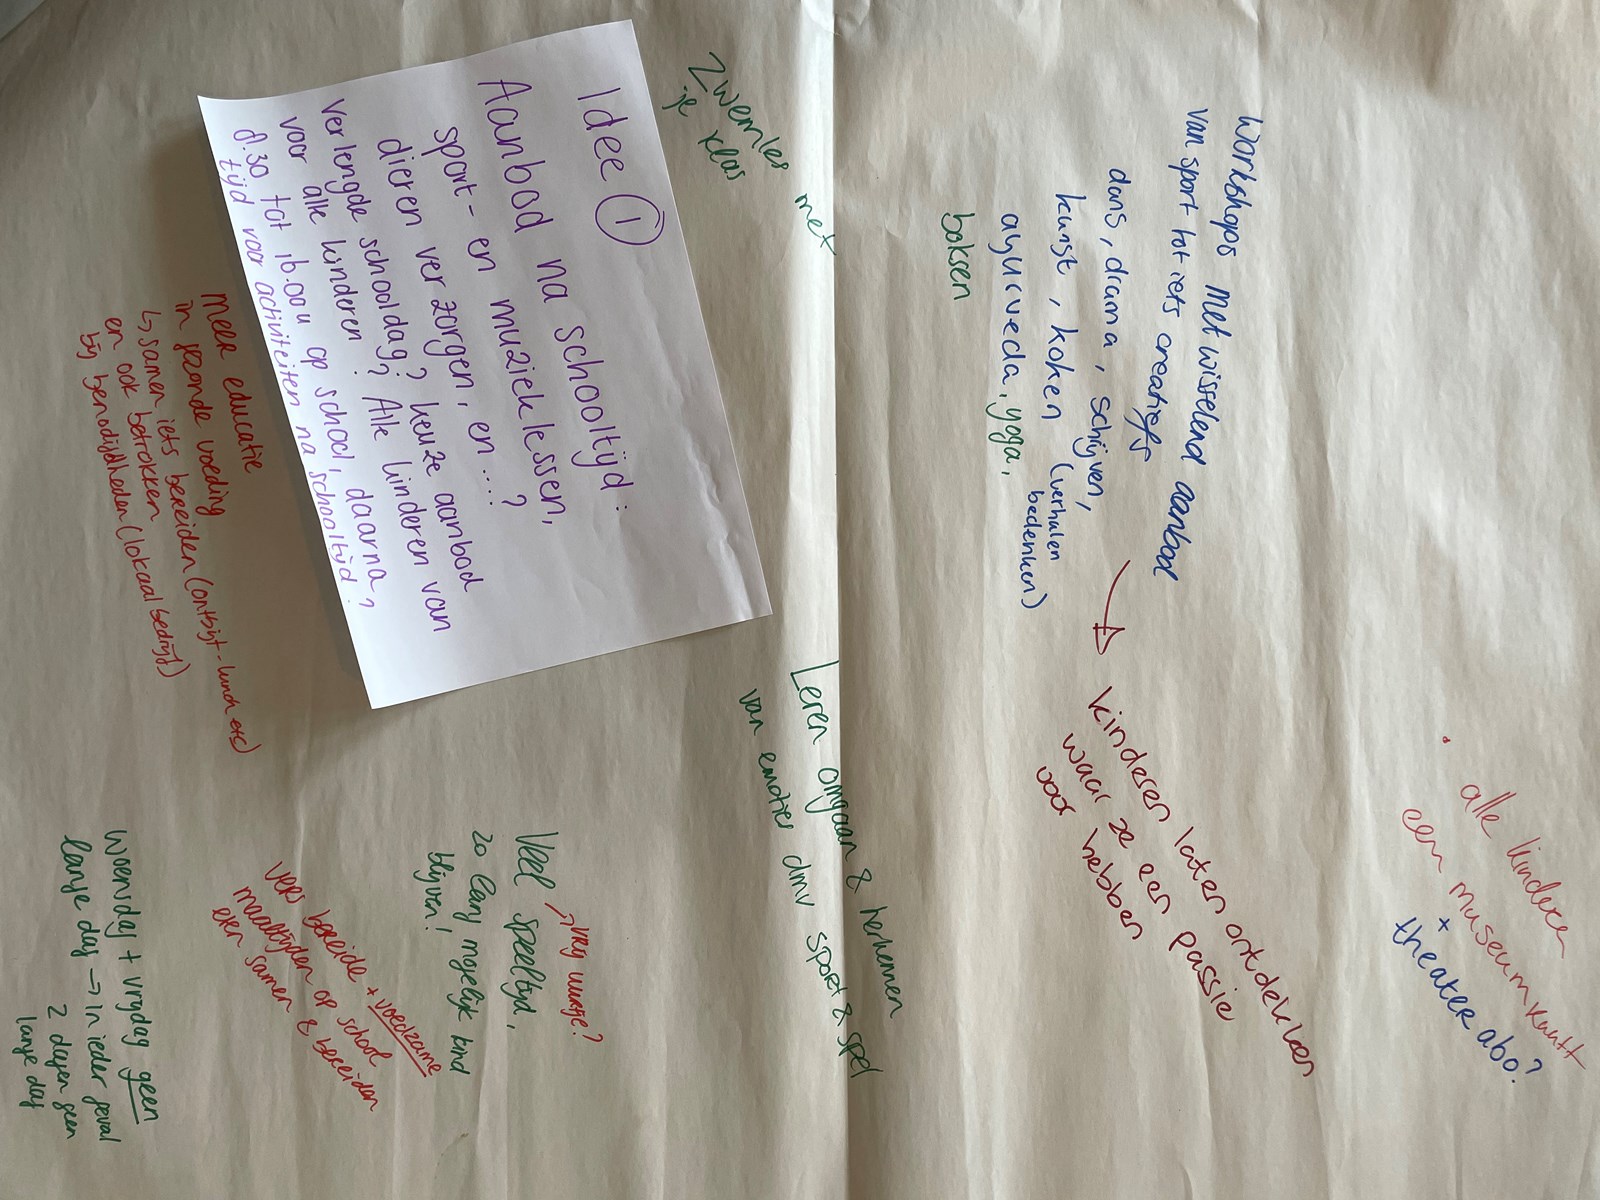 Idee ①
Aanbod na schooltijd:
sport- en muzieklessen,
dieren verzorgen, en ....?
Verlengde schooldag? Keuze aanbod
voor alle kinderen? Alle kinderen van
8.30 tot 16.00u op school, daarna?
tijd voor activiteiten na schooltijd.
Workshops met wisselend aanbod
van sport tot iets creatiefs
dans, drama, schrijven,
kunst, koken (verhalen
bedenken)
ayurveda, yoga,
boksen
kinderen laten ontdekken
waar ze een passie
voor hebben
alle kinderen
een museumkaart
+
theater abo?
Zwemles met
je klas
Leren omgaan & herkennen
van emoties dmv sport & spel
Meer educatie
in gezonde voeding
↳ samen iets bereiden (ontbijt-lunch etc)
en ook betrokken
bij benodigdheden (lokaal bedrijf)
→ vrij uurtje?
Veel speeltijd,
zo lang mogelijk kind
blijven!
vers bereide + voedzame
maaltijden op school
eten samen & bereiden
woensdag + vrijdag geen
lange dag → in ieder geval
2 dagen geen
lange dag